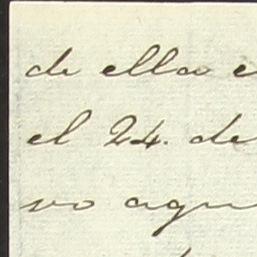 de ella e
el 24. de
vo aqu